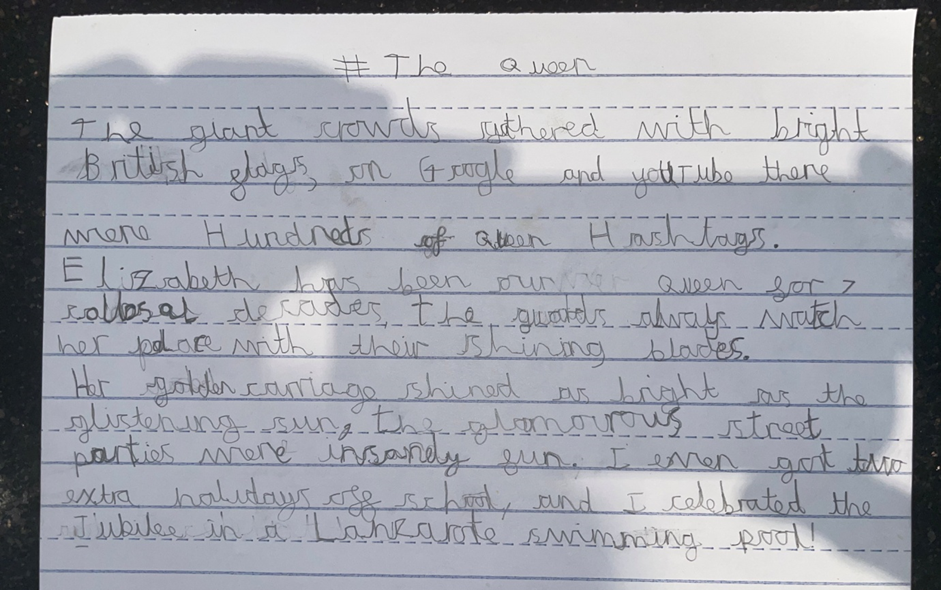 # The Queen
The giant crowds gathered with bright
British flags, on Google and youTube there
were Hundreds of Queen Hashtags.
Elizabeth has been our Queen for 7
collosal decades, the guards always watch
her palace with their shining blades.
Her golden carriage shined as bright as the
glistening sun, the glamourous street
parties were insanely fun. I even got two
extra holidays off school, and I celebrated the
Jubilee in a Lanzarote swimming pool!